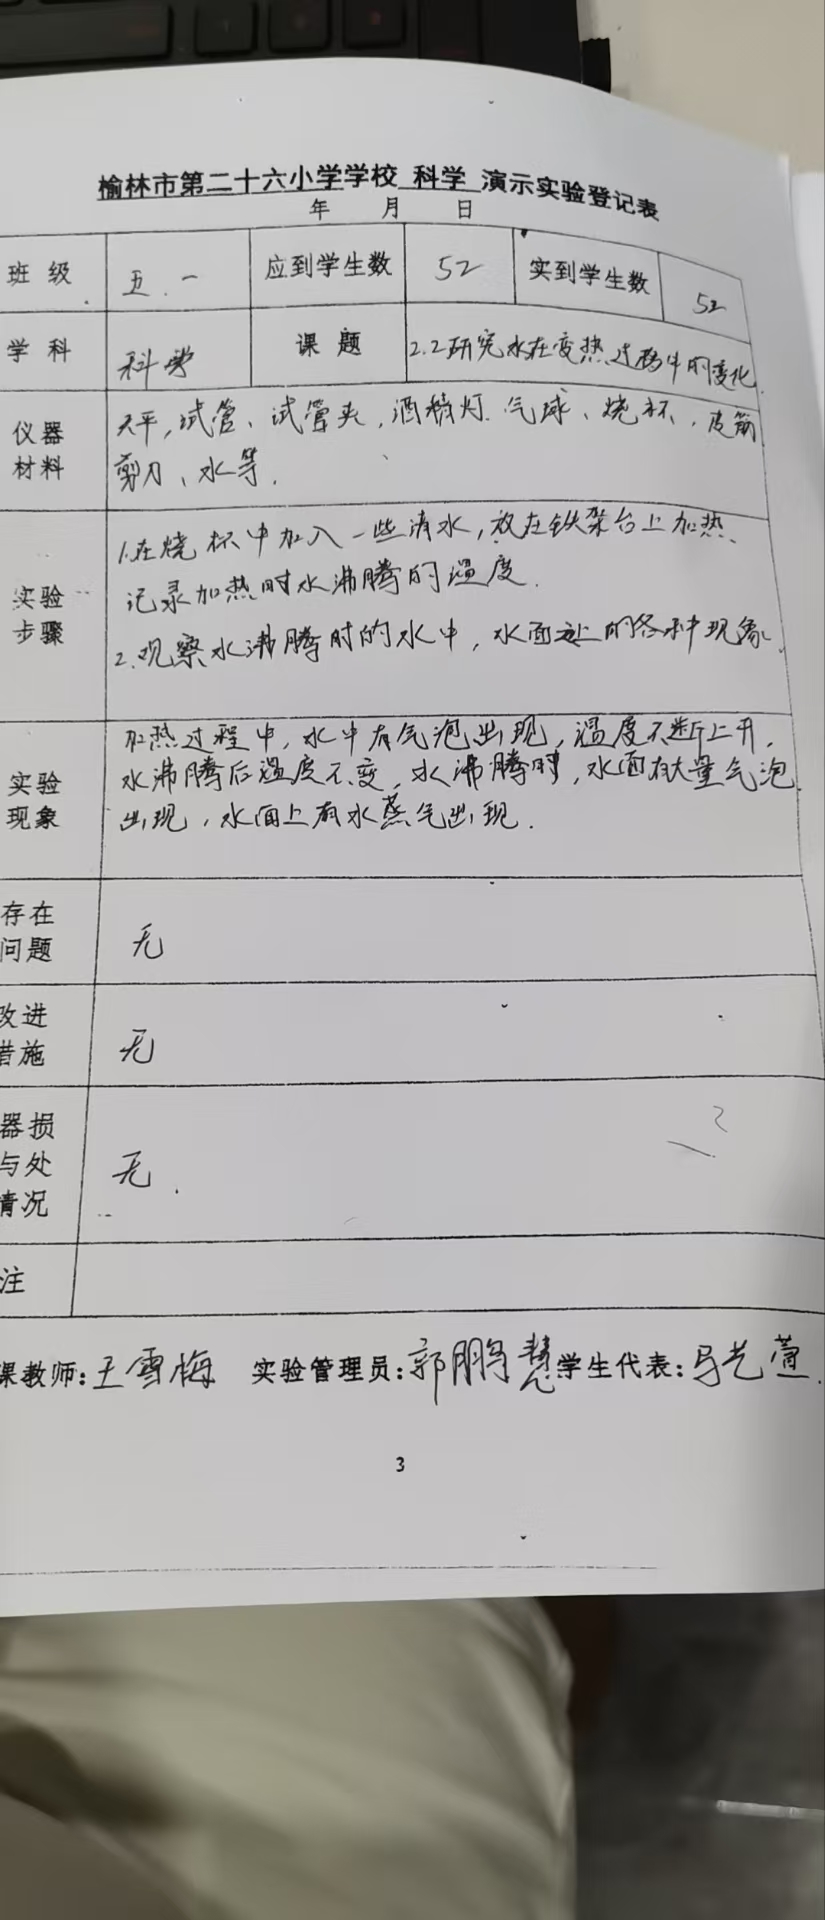 榆林市第二十六小学学校 科学 演示实验登记表
年 月 日
班级 五.一 应到学生数 52 实到学生数 52
学科 科学 课题 2.2研究水在变热过程中的变化
仪器材料
天平,试管、试管夹,酒精灯.气球、烧杯,皮筋
剪刀、水等.
实验步骤
1.在烧杯中加入一些清水,放在铁架台上加热.
记录加热时水沸腾的温度.
2.观察水沸腾时的水中,水面上的各种现象.
实验现象
加热过程中,水中有气泡出现,温度不断上升,
水沸腾后温度不变,水沸腾时,水面有大量气泡
出现,水面上有水蒸气出现.
存在问题 无
改进措施 无
器损
与处
情况 无.
注
课教师:王雪梅 实验管理员:郭鹏慧 学生代表:马艺萱.
3